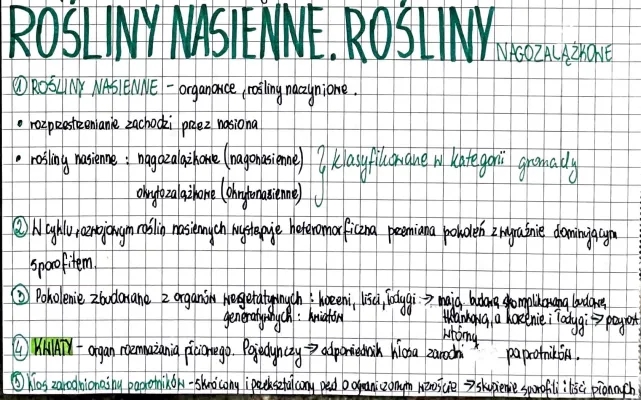 ROŚLINY NASIENNE. ROŚLINY NAGOZALĄŻKOWE
① ROŚLINY NASIENNE - organowce, rośliny naczyniowe.
• rozprzestrzenianie zachodzi przez nasiona
• rośliny nasienne : nagozalążkowe (nagonasienne) } klasyfikowane w kategorii gromady
okrytozalążkowe (okrytonasienne)
② W cyklu rozwojowym roślin nasiennych występuje heteromorficzna przemiana pokoleń z wyraźnie dominującym
sporofitem.
③ Pokolenie zbudowane z organów wegetatywnych : korzeni, liści, łodygi → mają budowę skomplikowaną budowę
generatywnych : kwiatów tkankową, a korzenie i łodygi → przyrost
wtórny
④ KWIATY - organ rozmnażania płciowego. Pojedynczy → odpowiednik kłosa zarodni paprotników.
⑤ Kłos zarodnionośny paprotników - skrócony i przekształcony pęd o ograniczonym wzroście → skupienie sporofili : liści płonnych